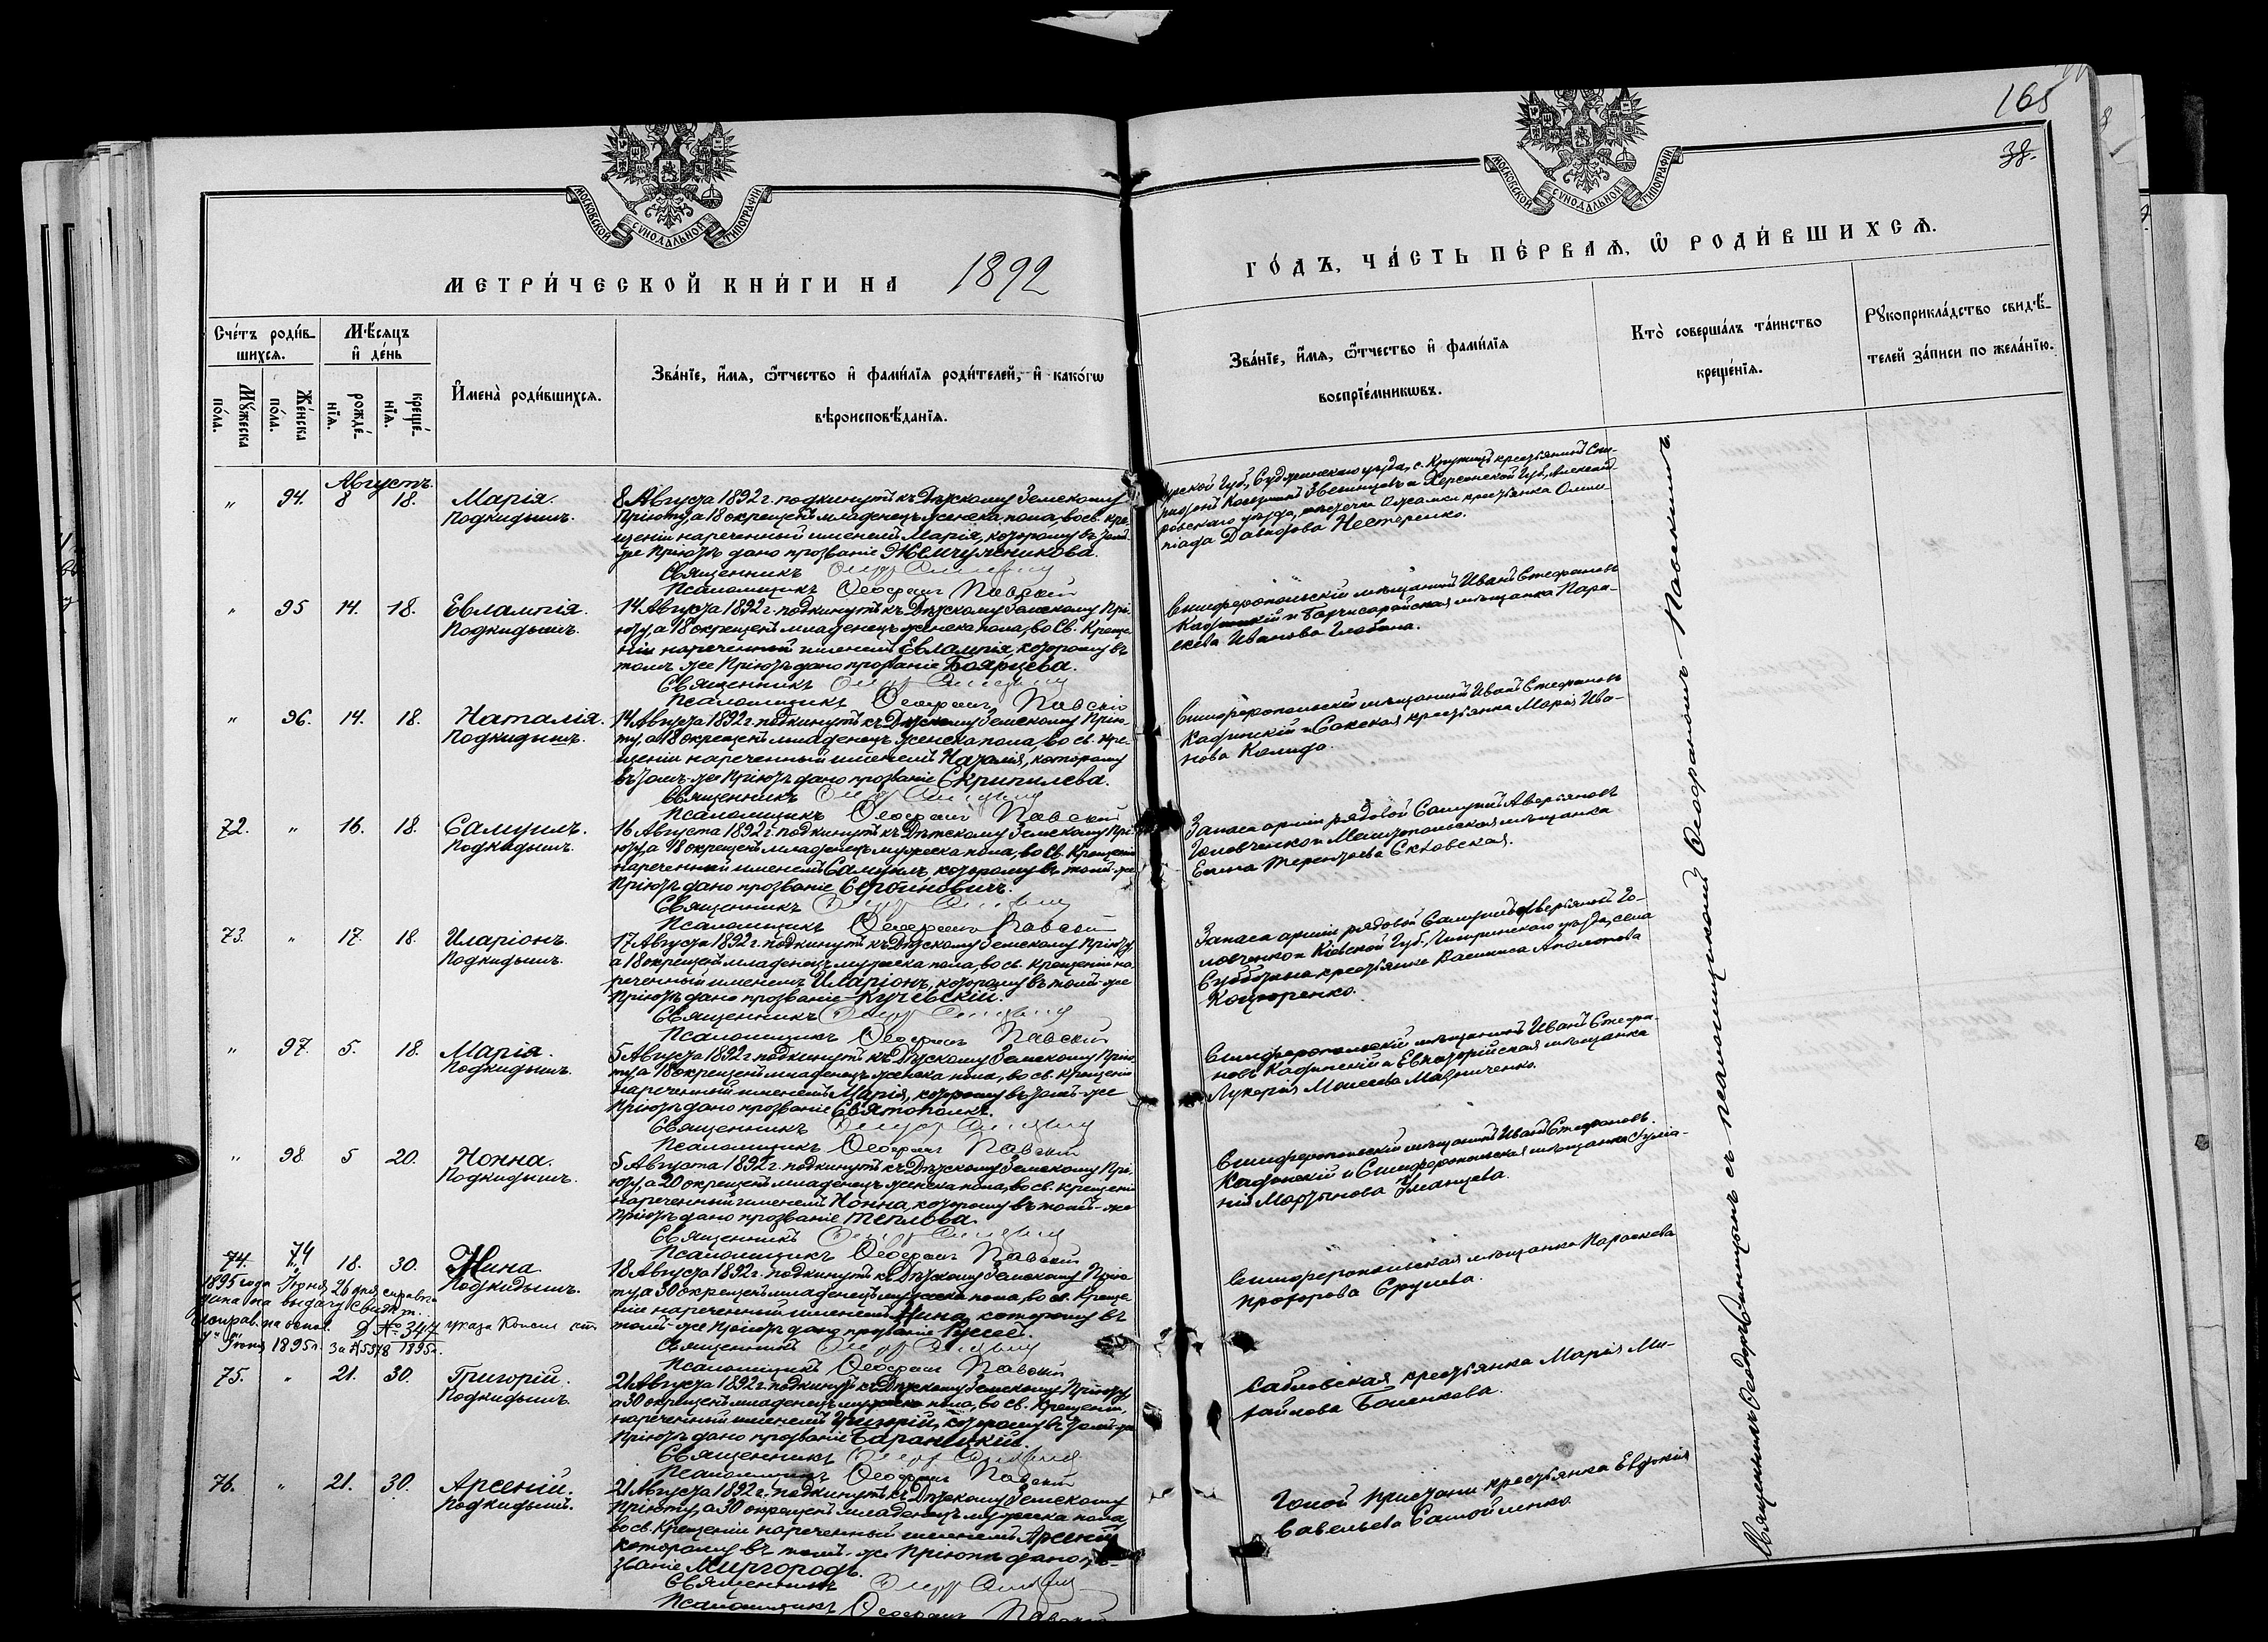 165
38.
МОСКОВСКОЙ СѴНОДАЛЬНОЙ ТИПОГРАФІИ
МОСКОВСКОЙ СѴНОДАЛЬНОЙ ТИПОГРАФІИ
МЕТРИ́ЧЕСКОЙ КНИ́ГИ НА 1892
ГО́ДЪ, ЧА́СТЬ ПЕ́РВАѦ, Ѽ РОДИ́ВШИХСѦ.
Сче́тъ роди́в-
шихсѧ.
Мꙋ́жеска по́ла.
Же́нска по́ла.
Мѣ́сѧцъ и҆ де́нь
рожде́-
нїѧ.
креще́-
нїѧ.
И҆мена̀ роди́вшихсѧ.
Зва́нїе, и҆́мѧ, ѻ҆́тчество и҆ фами́лїѧ роди́телей, и҆ како́гѡ
вѣроисповѣ́данїѧ.
Зва́нїе, и҆́мѧ, ѻ҆́тчество и҆ фами́лїѧ
воспрїе́мникѡвъ.
Кто̀ соверша́лъ та́инство
креще́нїѧ.
Рꙋкоприкла́дство свидѣ́-
телей за́писи по жела́нїю.
Августъ.
" 94. 8 18. Марія.
Подкидышъ.
8 Августа 1892 г. подкинутъ къ Дѣтскому Земскому
Пріюту, а 18 окрещенъ младенецъ женска пола, во св. кре-
щеніи нареченный именемъ Марія, которому въ томъ-
же Пріютѣ дано прозваніе Жемчужникова.
Священникъ
Псаломщикъ Ѳеофанъ Павскій
Курской Губ., Суджанскаго уѣзда, с.
Херсонской Губ., Александ-
ровскаго уѣзда, крестьянка Олим-
піада Давидова Нестеренко.
" 95 14. 18. Евлампія.
Подкидышъ.
14 Августа 1892 г. подкинутъ къ Дѣтскому Земскому Прі-
юту, а 18 окрещенъ младенецъ женска пола, во Св. Креще-
ніи нареченный именемъ Евлампія, которому въ
томъ же Пріютѣ дано прозваніе Боярцева.
Священникъ
Псаломщикъ Ѳеофанъ Павскій
Симферопольскій мѣщанинъ Иванъ Стефановъ
Кафинскій и Бахчисарайская мѣщанка Пара-
скева Иванова
" 96. 14. 18. Наталія.
Подкидышъ.
14 Августа 1892 г. подкинутъ къ Дѣтскому Земскому Прію-
ту, а 18 окрещенъ младенецъ женска пола, во св. кре-
щеніи нареченный именемъ Наталія, которому
въ томъ-же Пріютѣ дано прозваніе Скрипилева.
Священникъ
Псаломщикъ Ѳеофанъ Павскій
Симферопольскій мѣщанинъ Иванъ Стефановъ
Кафинскій и Сакская крестьянка Марія Ива-
нова
72. " 16. 18. Самуилъ.
Подкидышъ.
16 Августа 1892 г. подкинутъ къ Дѣтскому Земскому Прі-
юту, а 18 окрещенъ младенецъ мужеска пола, во св. Крещеніи
нареченный именемъ Самуилъ, которому въ томъ-же
Пріютѣ дано прозваніе
Священникъ
Псаломщикъ Ѳеофанъ Павскій
Запаса арміи рядовой Самуилъ Аверьяновъ
Головченко и Мелитопольская мѣщанка
Елена Терентьева
73. " 17. 18. Иларіонъ.
Подкидышъ.
17 Августа 1892 г. подкинутъ къ Дѣтскому Земскому Пріюту
а 18 окрещенъ младенецъ мужеска пола, во св. Крещеніи на-
реченный именемъ Иларіонъ, которому въ томъ-же
Пріютѣ дано прозваніе Кучевскій.
Священникъ
Псаломщикъ Ѳеофанъ Павскій
Запаса арміи рядовой Самуилъ Аверьяновъ Го-
ловченко и Кіевской Губ. Чигиринскаго уѣзда, села
Субботова крестьянка Василиса
" 97. 5. 18. Марія.
Подкидышъ.
5 Августа 1892 г. подкинутъ къ Дѣтскому Земскому Прію-
ту, а 18 окрещенъ младенецъ женска пола, во св. Крещеніи
нареченный именемъ Марія, которому въ томъ-же
Пріютѣ дано прозваніе Святополкъ.
Священникъ
Псаломщикъ Ѳеофанъ Павскій
Симферопольскій мѣщанинъ Иванъ Стефа-
новъ Кафинскій и Евпаторійская мѣщанка
Лукерія Моисеева Мазниченко.
" 98. 5 20. Нонна.
Подкидышъ.
5 Августа 1892 г. подкинутъ къ Дѣтскому Земскому Прі-
юту, а 20 окрещенъ младенецъ женска пола, во св. Крещеніи
нареченный именемъ Нонна, которому въ томъ-же
Пріютѣ дано прозваніе Теплова.
Священникъ
Псаломщикъ Ѳеофанъ Павскій
Симферопольскій мѣщанинъ Иванъ Стефановъ
Кафинскій и Симферопольская мѣщанка Іуліа-
нія Мартынова Уманцева.
74. 74 18. 30. Нина
Подкидышъ.
1895 года Іюня 26 дня справка
дана на выдачу свидѣт.
Исправ. на основ. указа Консис.
№ 347
Іюня 1895 г. за № 5378 1895 г.
18 Августа 1892 г. подкинутъ къ Дѣтскому Земскому Прію-
ту, а 30 окрещенъ младенецъ мужеска пола, во св. Креще-
ніи нареченный именемъ Нина, которому въ
томъ-же Пріютѣ дано прозваніе
Священникъ
Псаломщикъ Ѳеофанъ Павскій
Симферопольская мѣщанка Параскева
Прохорова
75. " 21. 30. Григорій.
Подкидышъ.
21 Августа 1892 г. подкинутъ къ Дѣтскому Земскому Пріюту,
а 30 окрещенъ младенецъ мужеска пола, во св. Крещеніи,
нареченный именемъ Григорій, которому въ томъ-же
Пріютѣ дано прозваніе Бараницкій.
Священникъ
Псаломщикъ Ѳеофанъ Павскій
Сабловская крестьянка Марія Ми-
хайлова
76. " 21. 30. Арсеній.
Подкидышъ.
21 Августа 1892 г. подкинутъ къ Дѣтскому Земскому
Пріюту, а 30 окрещенъ младенецъ мужеска пола,
во св. Крещеніи нареченный именемъ Арсеній,
которому въ томъ-же Пріютѣ дано про-
званіе Миргородъ.
Священникъ
Псаломщикъ Ѳеофанъ Павскій
Голой Пристани крестьянка Евдокія
Савельева Самойленко.
Священникъ Ѳеодоръ съ псаломщикомъ Ѳеофаномъ Павскимъ